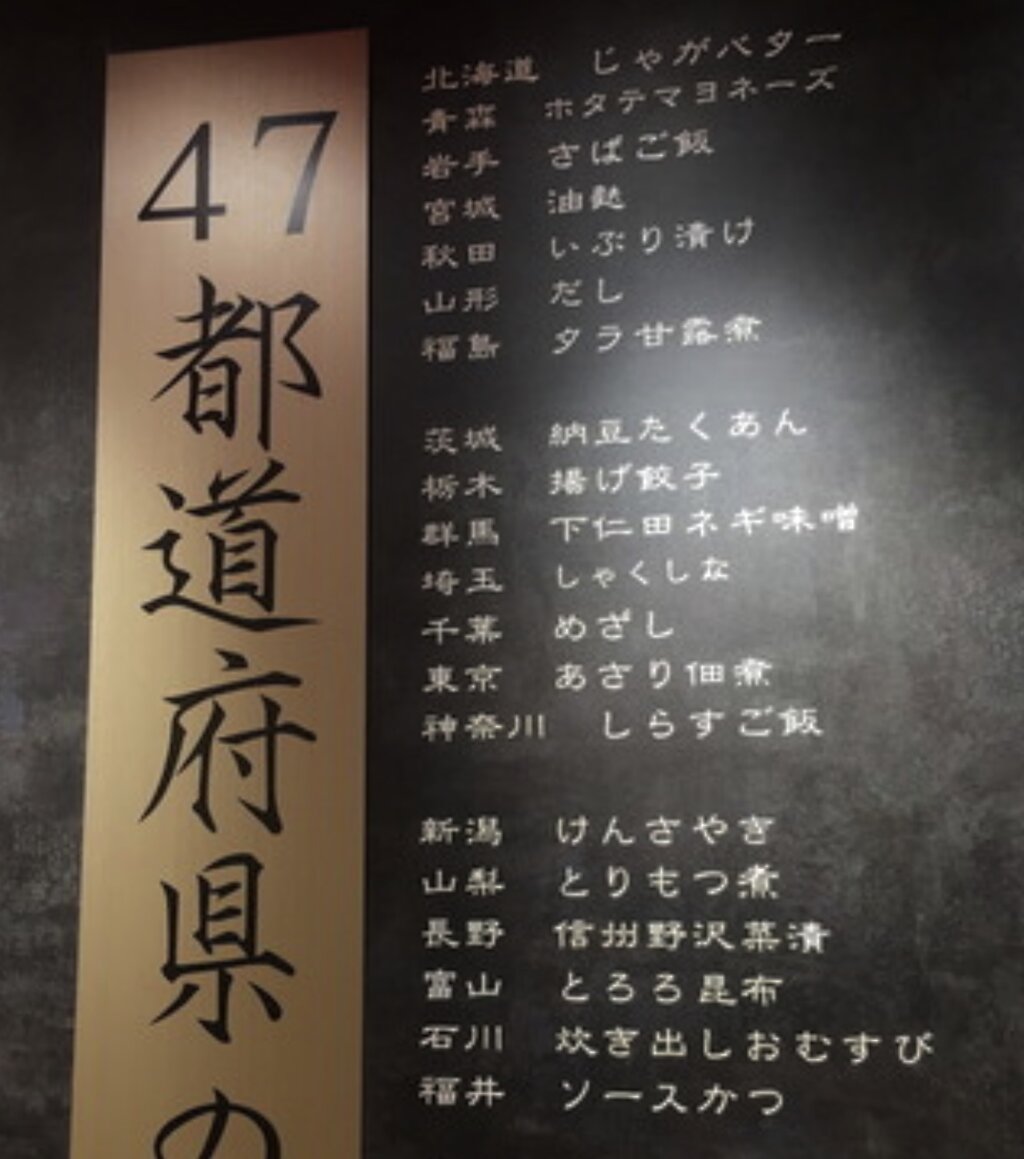 47都道府県の
北海道 じゃがバター
青森 ホタテマヨネーズ
岩手 さばご飯
宮城 油麩
秋田 いぶり漬け
山形 だし
福島 タラ甘露煮
茨城 納豆たくあん
栃木 揚げ餃子
群馬 下仁田ネギ味噌
埼玉 しゃくしな
千葉 めざし
東京 あさり佃煮
神奈川 しらすご飯
新潟 けんさやき
山梨 とりもつ煮
長野 信州野沢菜漬
富山 とろろ昆布
石川 炊き出しおむすび
福井 ソースかつ